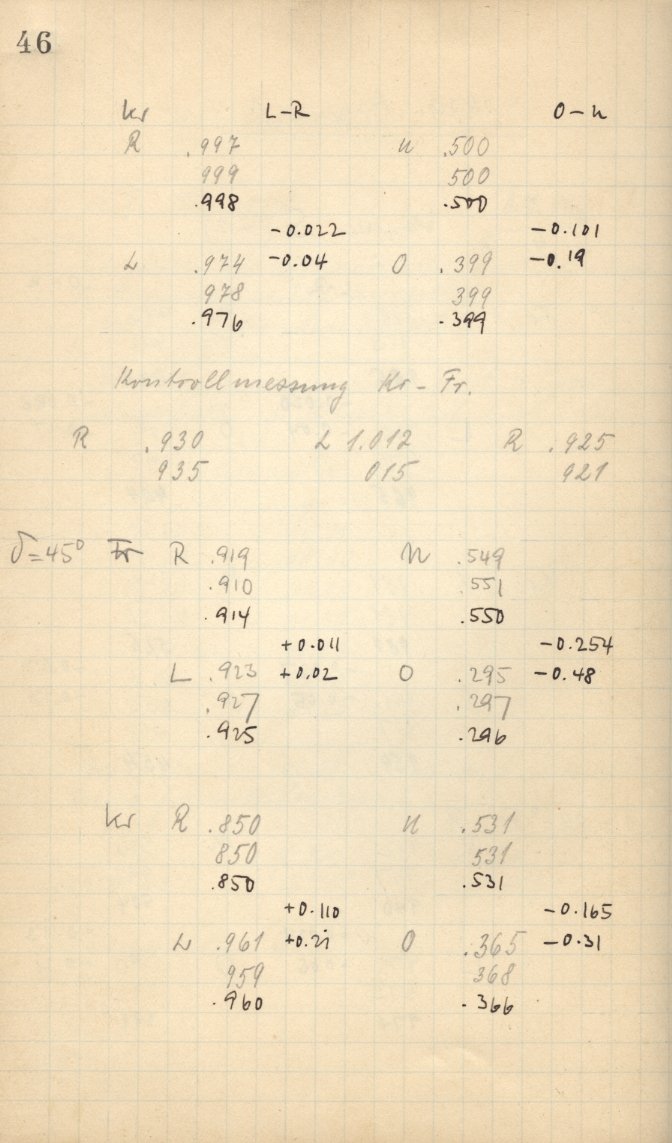 46
Kr L-R O-u
R .997 u .500
999 500
.998 .500
-0.022 -0.101
L .974 -0.04 O .399 -0.19
978 399
.976 .399
Kontrollmessung Kr - Fr.
R .930 L 1.012 R .925
935 015 921
δ=45° Fr R .919 u .549
.910 551
.914 .550
+0.011 -0.254
L .923 +0.02 O .295 -0.48
.927 .297
.925 .296
Kr R .850 u .531
850 531
.850 .531
+0.110 -0.165
L .961 +0.21 O .365 -0.31
959 368
.960 .366